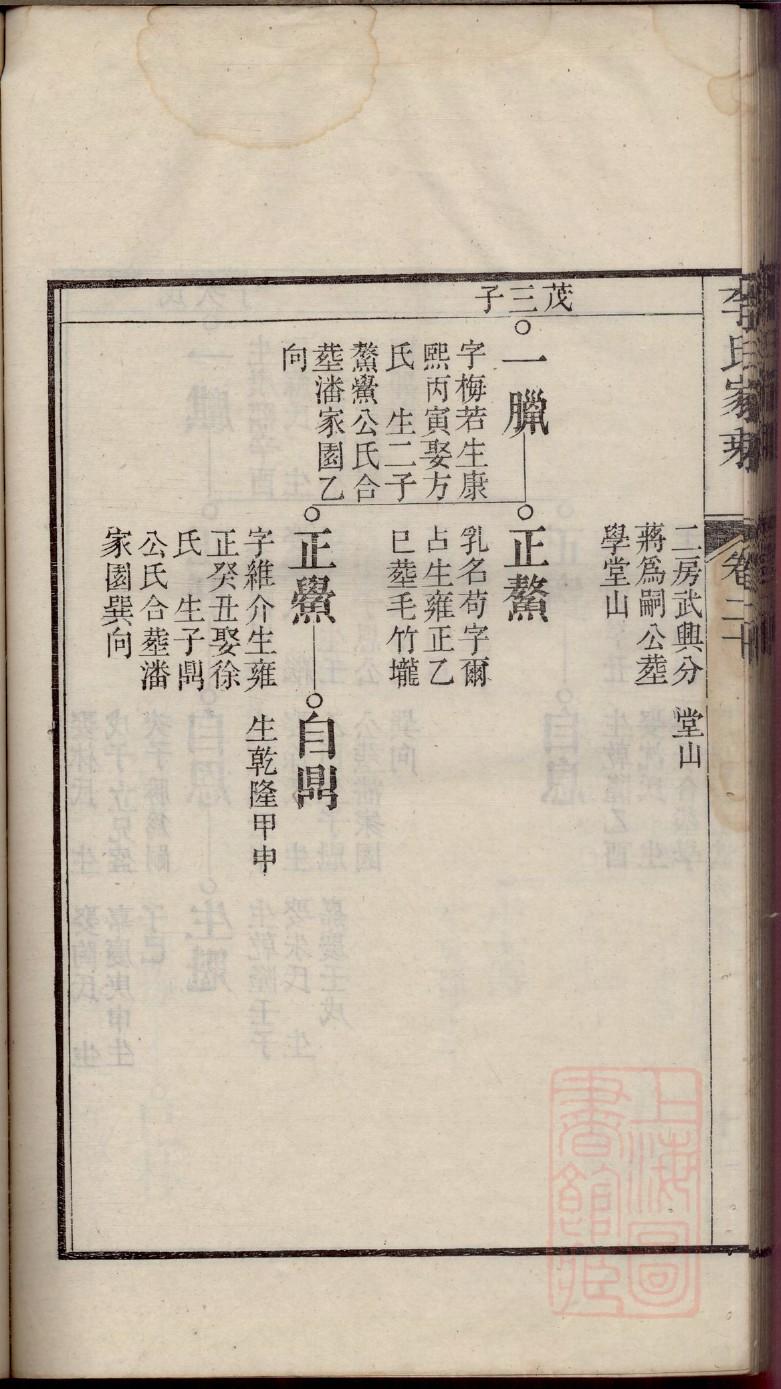 李氏家乘
卷二十
茂三子
二房武興分
蔣爲嗣公塟
學堂山
堂山
一臘
字梅若生康
熙丙寅娶方
氏 生二子
鰲鱟公氏合
塟潘家園乙
向
正鰲
乳名苟字爾
占生雍正乙
巳塟毛竹壠
正鱟
字維介生雍
正癸丑娶徐
氏 生子鼎
公氏合塟潘
家園巽向
自鼎
生乾隆甲申
上海圖
書館藏